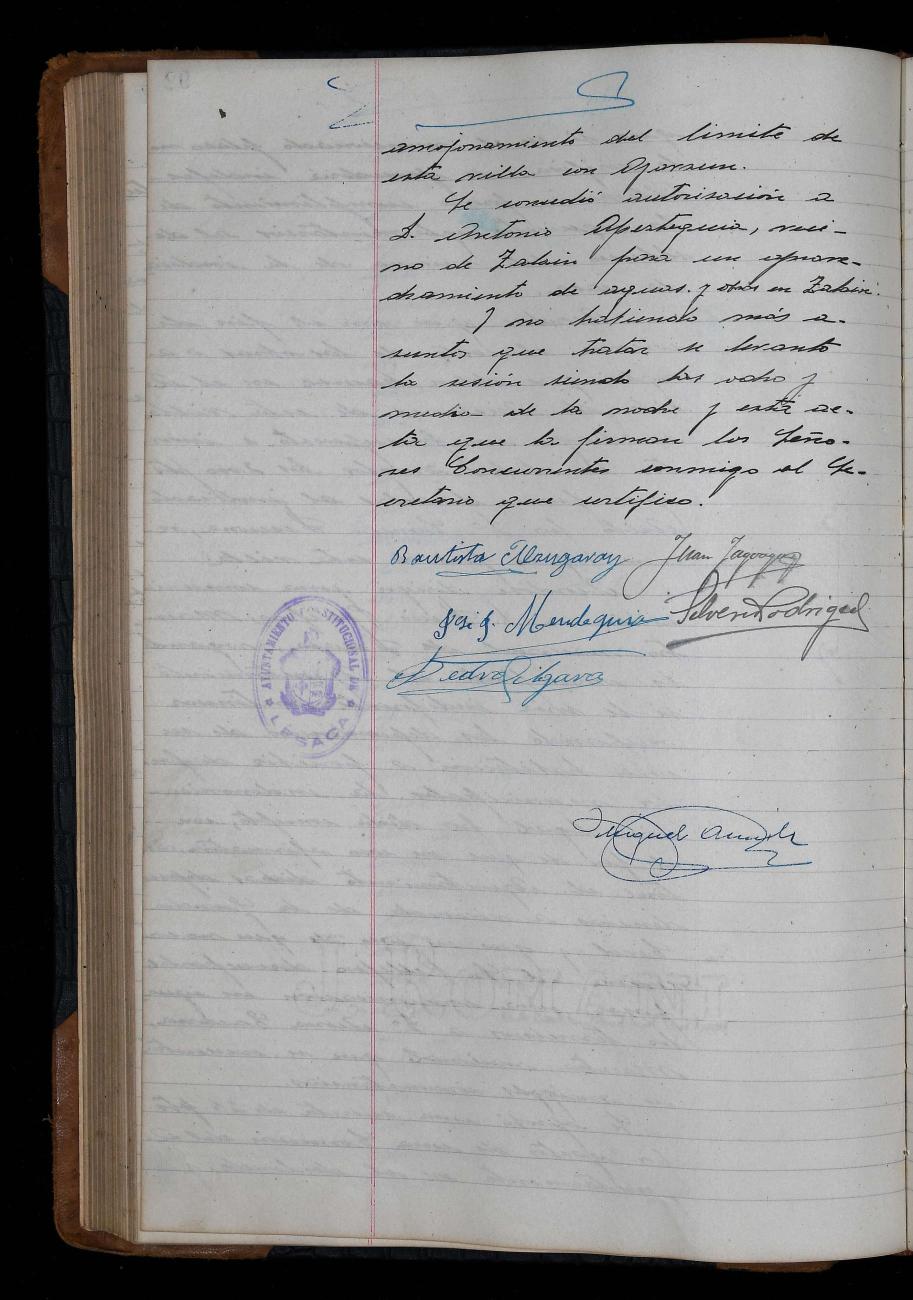 amojonamiento del limite de
esta villa con Garzun.
Se concedió autorización a
D. Antonio Apezteguia, veci-
no de Zalain para un aprove-
chamiento de aguas. y otros en Zalain.
Y no habiendo más a-
suntos que tratar se levanto
la sesión siendo las ocho y
media de la noche y esta ac-
ta que la firman los Seño-
res Concurrentes conmigo el Se-
cretario que certifico.
Bautista Juan
José J. Mendeguia Silverio Rodriguez
Pedro
AYUNTAMIENTO CONSTITUCIONAL DE
LESACA
Miguel